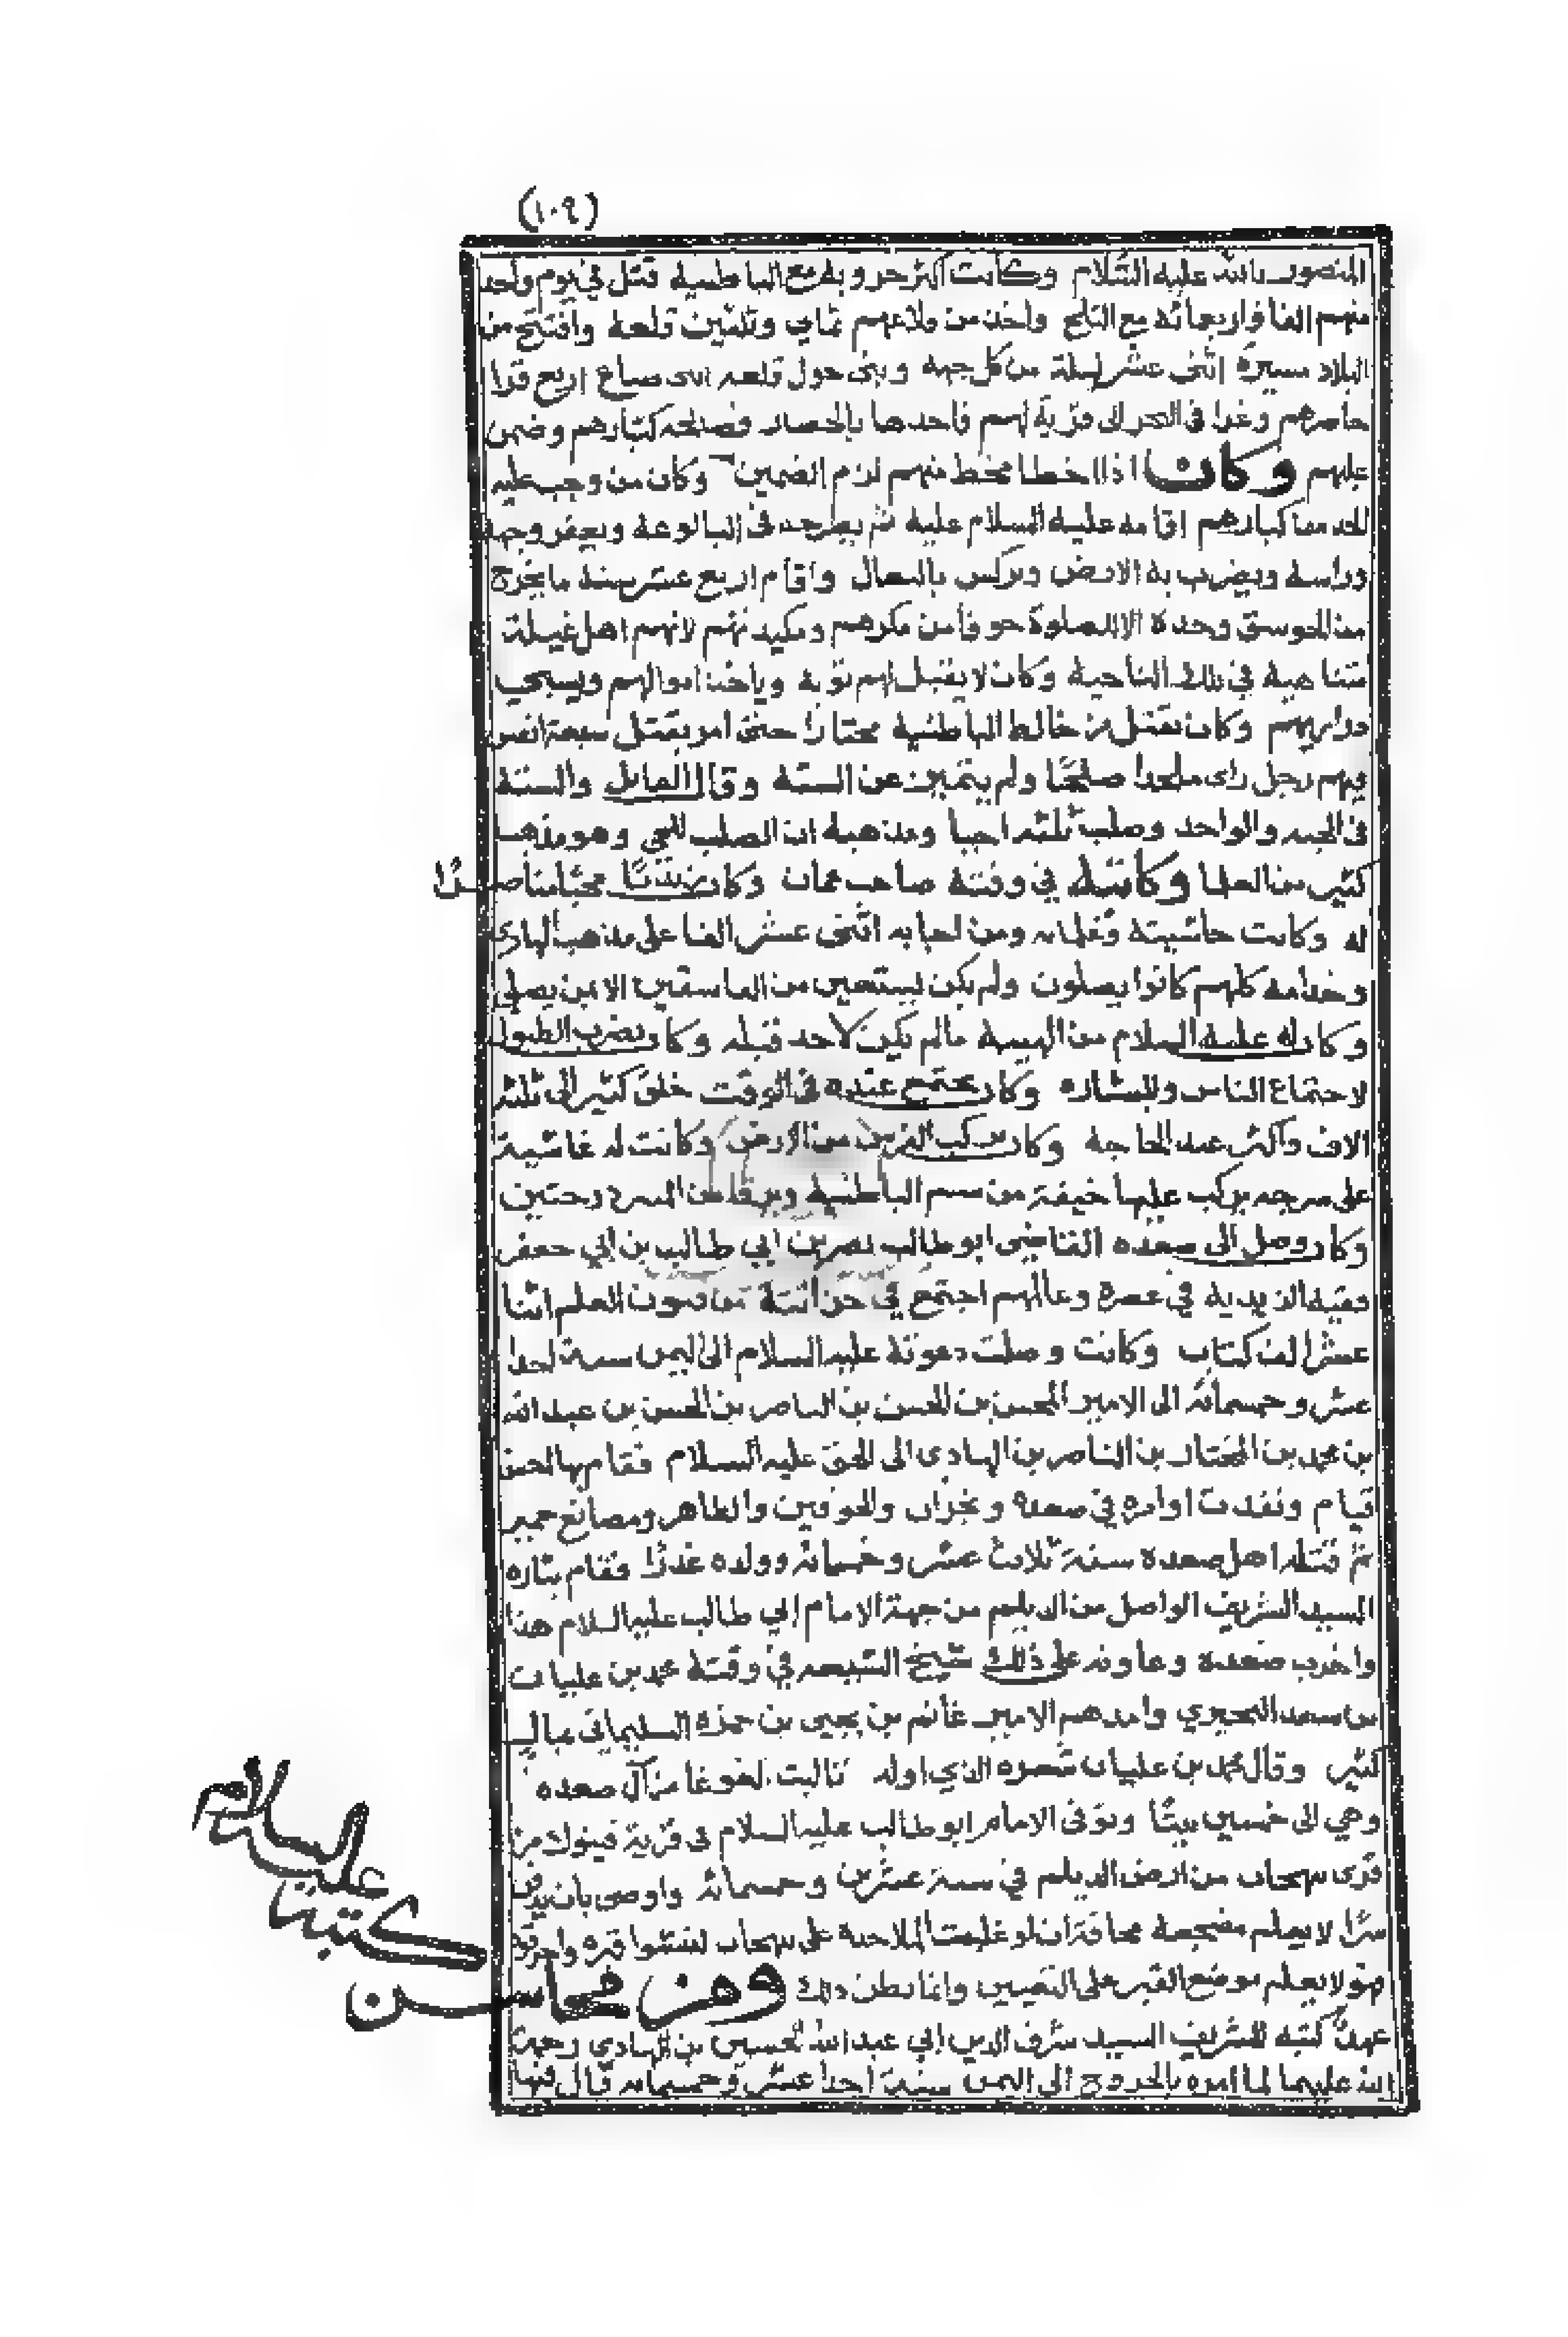 (١٠٩)
المنصور بالله عليه السلام وكانت اكثر حروبه مع الباطنية قتل في يوم واحد
منهم الفا واربعمائه مع واخذ من قلاعهم ثمان وثلثين قلعة وافتتح من
البلاد مسيرة اثنى عشر ليلة من كل جهه وبنى حول قلعه اربع قرا
حاصرهم وغزا في البحر الى قرية لهم فاخذها بالحصار وصالحه كبارهم وضمن
عليهم وكان اذا اخطا مخط منهم لزم الضمين وكان من وجب عليه
الحد من كبارهم اقامه عليه السلام عليه ثم يطرحه في البالوعة ويعفر وجهه
وراسه ويضرب به الارض بالنعال واقام اربع عشر سنة ما يخرج
من الجوسق وحده الا للصلوة خوفا من مكرهم ومكيدتهم لانهم اهل غيلة
متناهية في تلك الناحية وكان لا يقبل لهم توبة وياخذ اموالهم ويسبي
ذراريهم وكان يقتل من خالط الباطنية مختارا حتى امر بقتل سبعة انفس
فيهم رجل راى ملحدا ولم يتميز عن الستة وقال القاتل والستة
في الجنه والواحد وصلب ثلثه احيا ومذهبه ان الصلب للحي وهو مذهب
كثير من العلما وكاتبه في وقته صاحب عمان وكان محبا مناصرا
له وكانت حاشيته وغلمانه ومن اصحابه اثنى عشر الفا على مذهب الهادي
وخدامه كلهم كانوا يصلون ولم يكن يستعين من الفاسقين الا بمن يصلي
وكان له عليه السلام من الهيبه مالم يكن لاحد قبله وكان يضرب الطبول
لاجتماع الناس وللبشاره وكان يجتمع عنده في الوقت خلق كثير الى ثلثه
الاف واكثر عند الحاجة وكان يركب الفرس من الارض وكانت له غاشية
على سرجه يركب عليها خيفة من سم الباطنية
وكان وصل الى صعده القاضي ابو طالب نصر بن ابي طالب بن ابي جعفر
فقيه الزيدية في عصره وعالمهم اجتمع في خزانته من فنون العلم اثنا
عشر الف كتاب وكانت وصلت دعوته عليه السلام الى اليمن سنة احدا
عشر وخمسمائه الى الامير المحسن بن الحسن بن الناصر بن الحسن بن عبد الله
بن محمد بن المختار بن الناصر بن الهادي الى الحق عليه السلام فقام بها احسن
قيام ونفذت اوامره في صعده ونجران والجوفين والظاهر ومصانع حمير
ثم قتله اهل صعده سنة ثلاث عشر وخمسمائه وولده غدرا فقام بثاره
السيد الشريف الواصل من الديلم من جهة الامام ابي طالب عليه السلام هذا
واخرب صعدة وعاونه على ذلك شيخ الشيعه في وقته محمد بن عليان
بن سعد البحيري وامدهم الامير غانم بن يحيى بن حمزه السليماني بمال
كثير وقال محمد بن عليان شعره الذي اوله من آل صعده
وهي الى خمسين بيتا وتوفى الامام ابو طالب عليه السلام في قرية من
قرى من ارض الديلم في سنة عشرين وخمسمائه واوصى بان يدفن
سرا لا يعلم مضجعه مخافة ان لو غلبت الملاحدة على لنبشوا قبره واحرقوه
فهو لا يعلم موضع القبر على التعيين وانما بطن ذلك ومن محاسن كتبنا عليه السلام
عهد كتبه للشريف السيد شرف الدين ابي عبد الله الحسين بن الهادي رحمة
الله عليهما لما امره بالخروج الى اليمن سنة احدا عشر وخمسمائه قال فيها